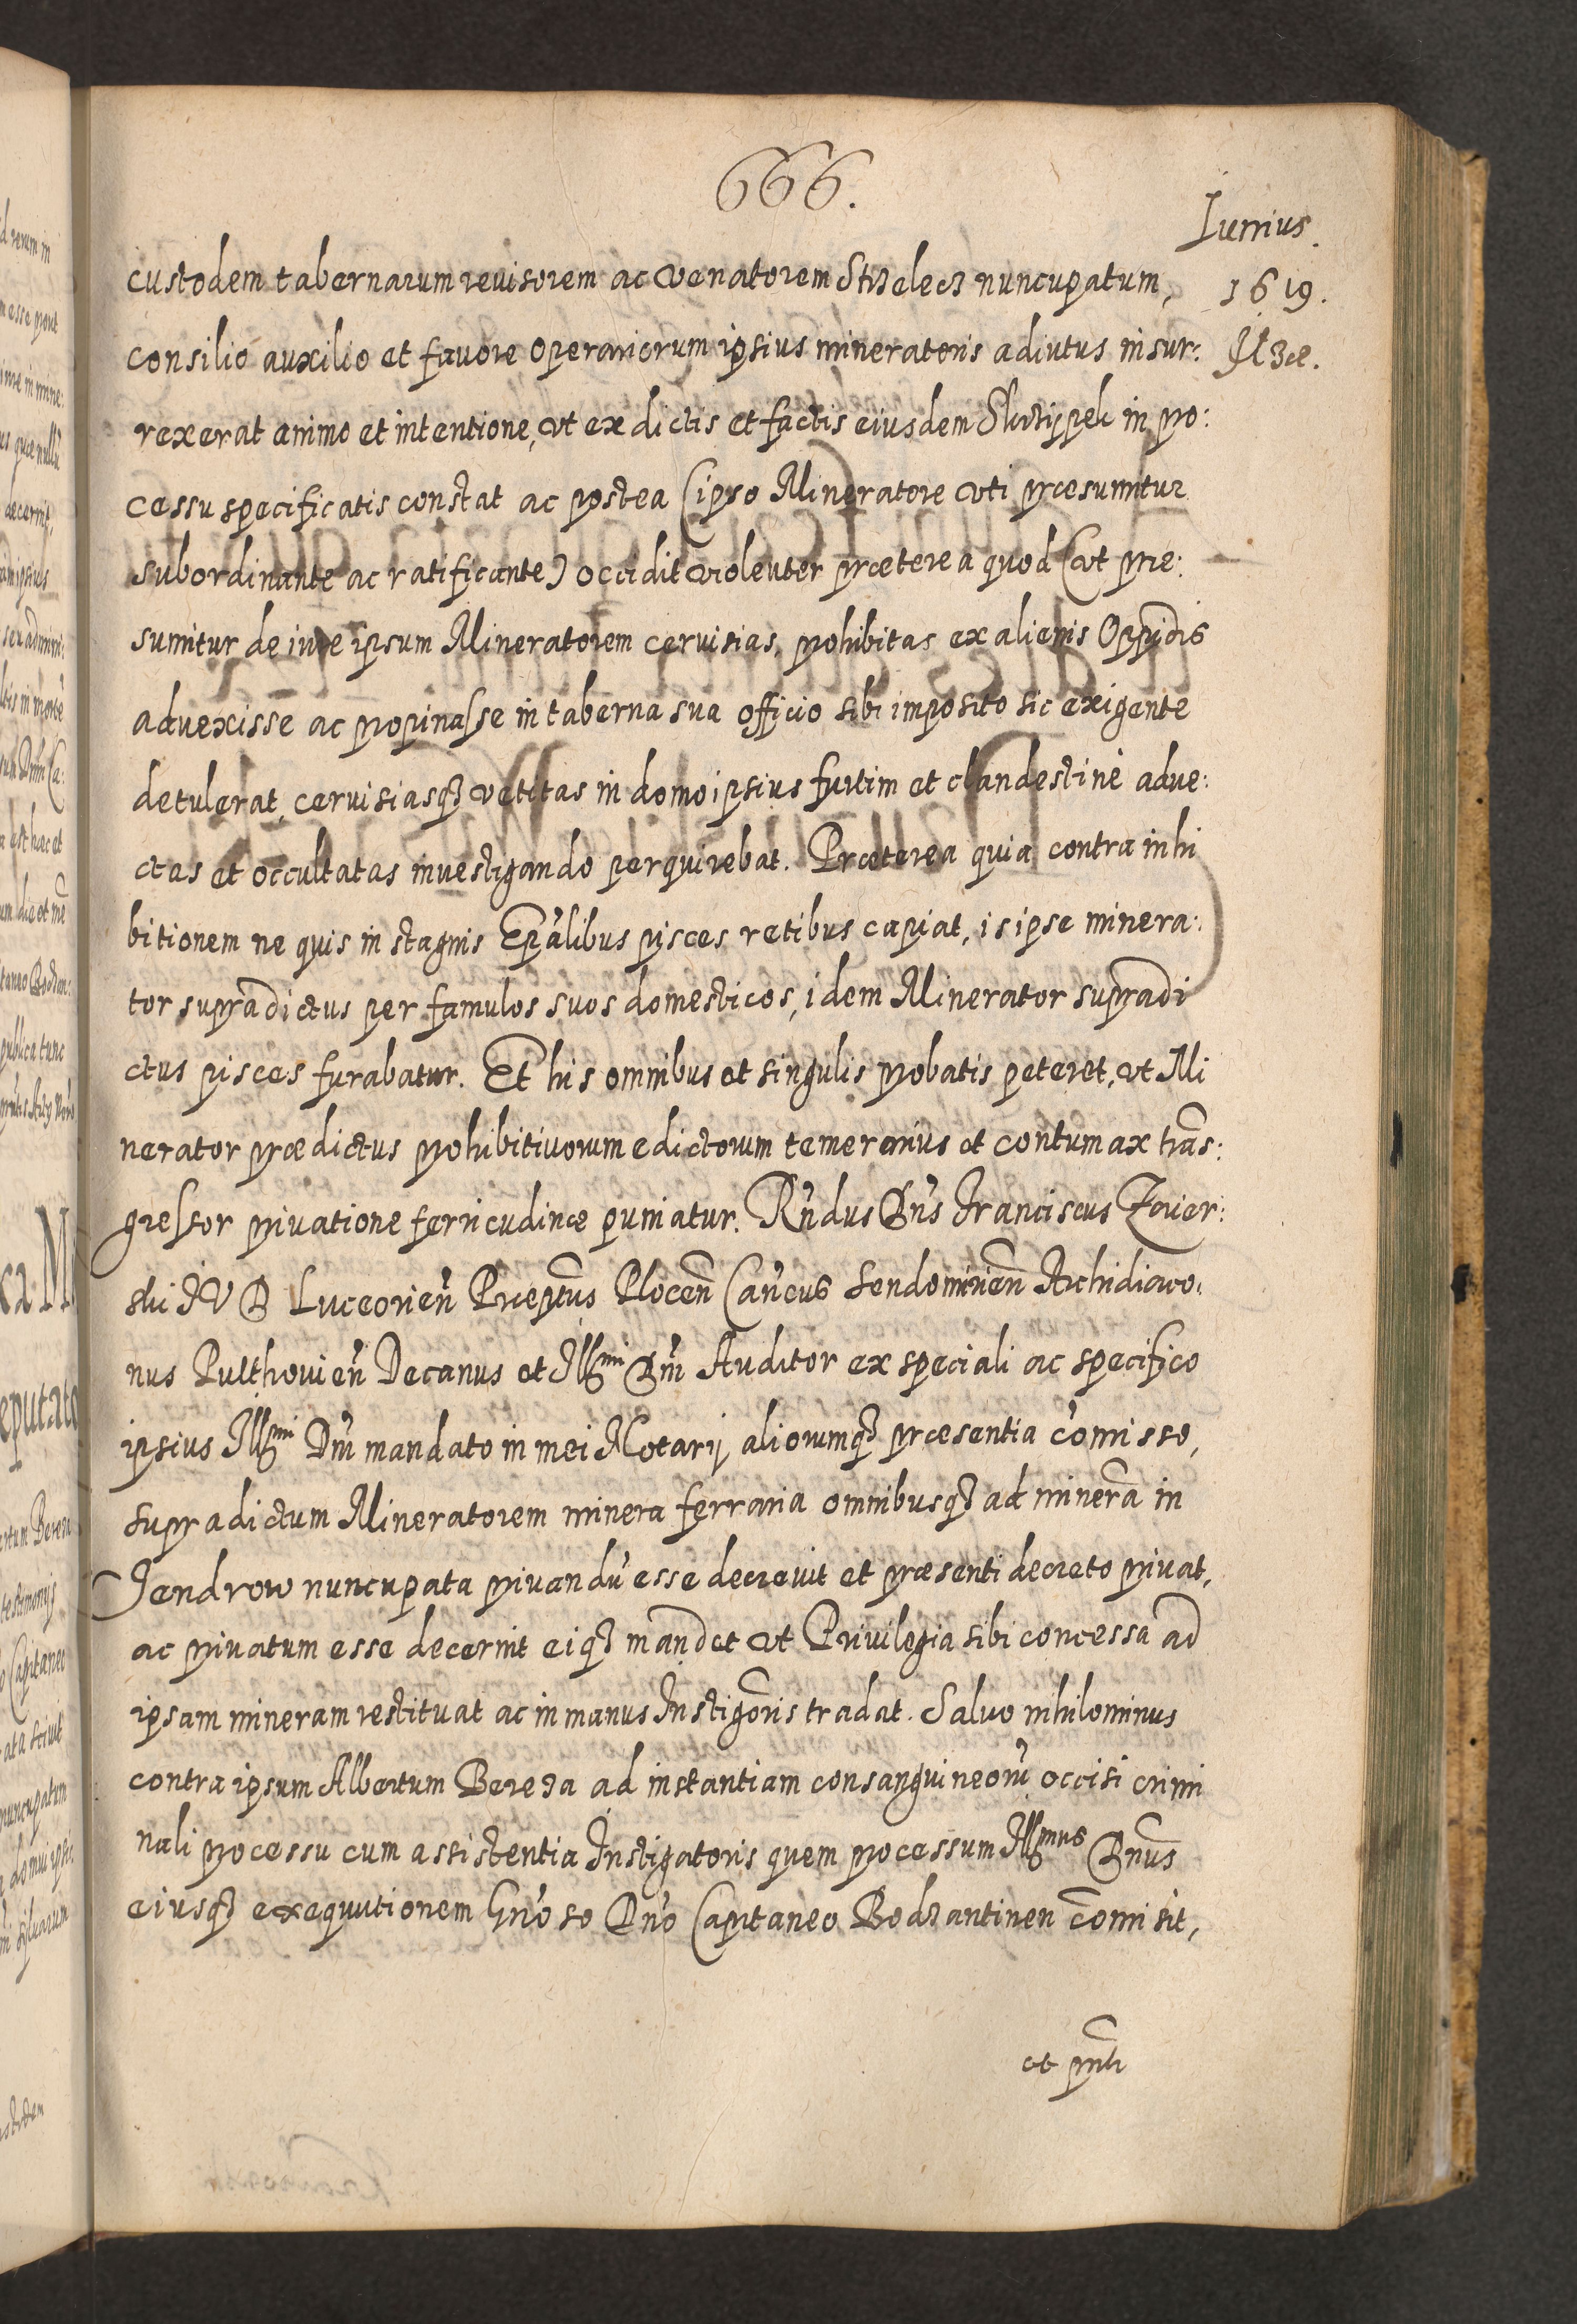 666.
Iunius.
1619.
Ilza.
custodem tabernarum reuisorem ac venatorem Strzelecz nuncupatum,
consilio auxilio et fauore operariorum ipsius mineratoris adiutus insur:
rexerat animo et intentione, vt ex dictis et factis eiusdem Skrzypek in pro:
cessu specificatis constat ac postea (ipso Mineratore vti præsumitur
subordinante ac ratificante) occidit violenter præterea quod (vt præ:
sumitur de iure ipsum Mineratorem ceruisias, prohibitas ex alienis Oppidis
aduexisse ac propinasse in taberna sua officio sibi imposito sic exigente
detulerat, ceruisiasq3 vetitas in domo ipsius furtim et clandestinè adue:
ctas et occultatas inuestigando perquirebat. Præterea quia contra inhi
bitionem ne quis in stagnis Ep̃alibus pisces retibus capiat, is ipse minera:
tor supradictus per famulos suos domesticos, idem Minerator supradi
ctus pisces furabatur. Et his omnibus et singulis probatis peteret, vt Mi
nerator prædictus prohibitiuorum edictorum temerarius et contumax trãs:
gressor priuatione ferricudinæ puniatur. Rñdus Dñs Franciscus Zaier:
ski IV D Luceorieñ Præptũs Ploceñ Cañcus Sendomirieñ Archidiaco:
nus Pulthouieñ Decanus et Illmi Dñi Auditor ex speciali ac specifico
ipsius Illmi Dñi mandato in mei Notarij aliorumq3 præsentia com̃isso,
supradictum Mineratorem minera ferraria omnibusq3 ad minerã in
Jendrow nuncupata priuandũ esse decreuit et præsenti decreto priuat,
ac priuatum esse decernit eiq3 mandet vt Priuilegia sibi concessa ad
ipsam mineram restituat ac in manus Instigõris tradat. Saluo nihilominus
contra ipsum Albertum Bereza ad instantiam consanguineorũ occisi crimi
nali processu cum assistentia Instigatoris quem processum Illmus Dnũs
eiusq3 exequutionem Gñoso Dño Capitaneo Bodzantinen com̃isit,
et pñti